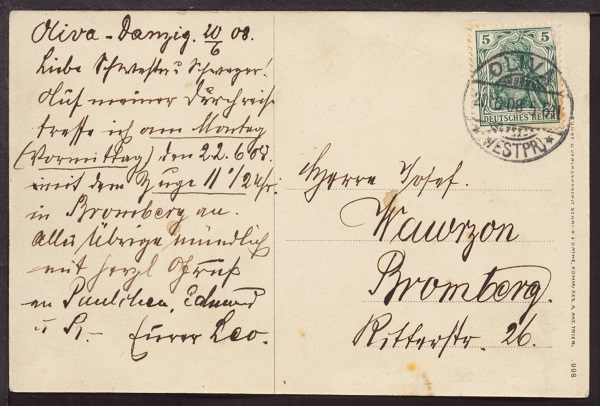 Oliva - Danzig. 20/6 08.
Liebe Schwester u Schwager!
Auf meiner Durchreise
treffe ich am Montag
(Vormittag) den 22.6.08.
mit dem Zuge 11 1/2 Uhr
in Bromberg an.
Alles Übrige mündlich
mit herzl Gruß
an Paulchen, Edmund
u
Eurer Leo.
5
DEUTSCHES REICH
OLIVA
(WESTPR)
Herrn Josef.
Wawrzon
Bromberg.
Ritterstr. 26.
908